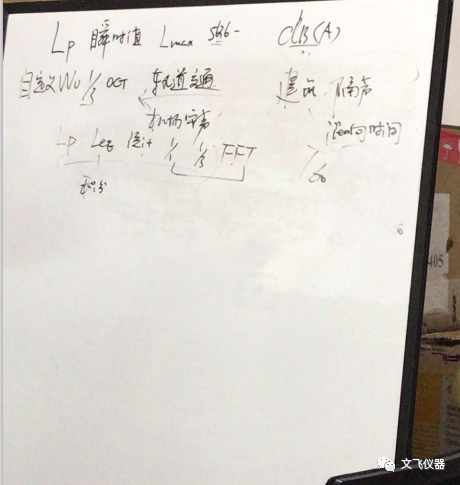 Lp 瞬时值 Lmax 5136- dB(A)
自定义Wu 1/3 OCT 轨道交通 建筑 隔声
机场噪声 混响时间
Lp Leq 统计 1/1 1/3 FFT 60
积分
405
文飞仪器